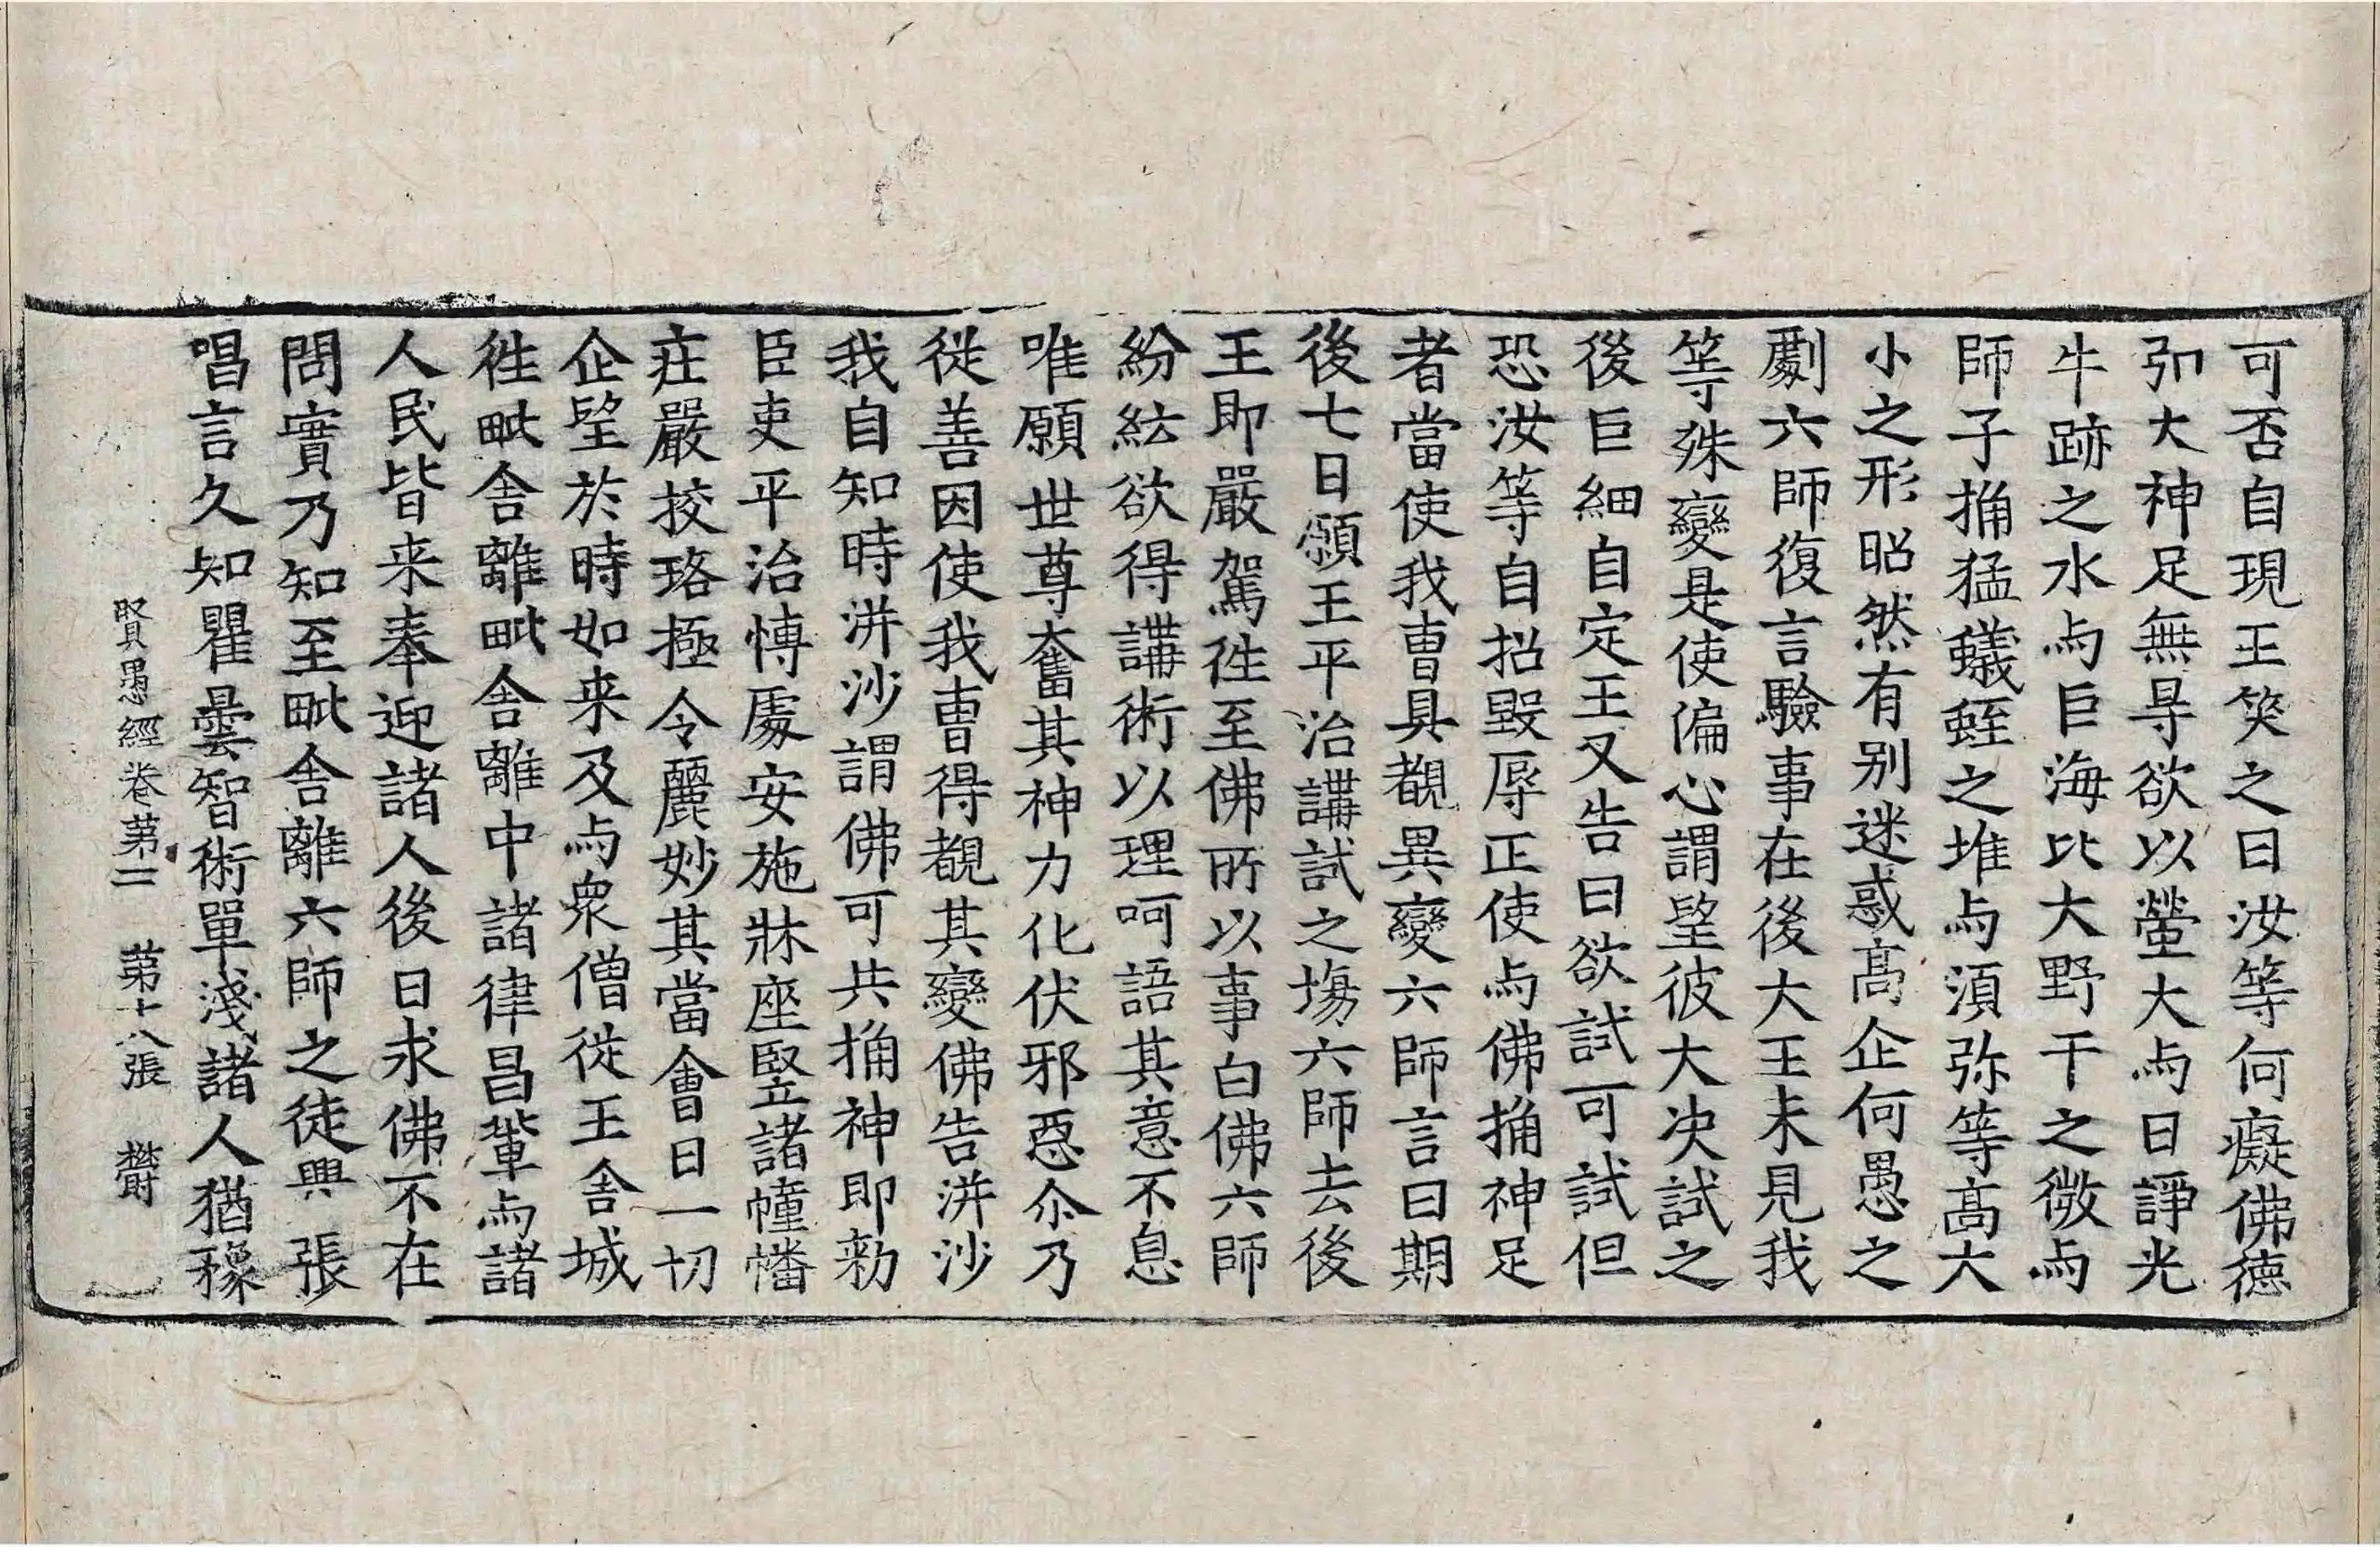 可否自現王笑之曰汝等何癡佛德
弘大神足無㝵欲以螢大与日諍光
牛跡之水与巨海比大野干之微与
師子捔猛蟻蛭之堆与湏弥等髙大
小之形昭然有别迷惑髙企何愚之
劇六師復言驗事在後大王未見我
等殊變是使偏心謂朢彼大决試之
後巨細自定王又告曰欲試可試但
恐汝等自招毀辱正使与佛捔神足
者當使我曺具覩異變六師言曰期
後七日願王平治講試之塲六師去後
王即嚴駕徃至佛所以事白佛六師
紛紜欲得講術以理呵語其意不息
唯願世尊奮其神力化伏邪惡尒乃
従善因使我曺得覩其變佛告洴沙
我自知時洴沙謂佛可共捔神即勑
臣吏平治博處安施牀座竪諸幢幡
莊嚴挍珞極令麗妙其當會日一切
企朢於時如来及与衆僧従王舍城
徃毗舍離毗舍離中諸律昌輩与諸
人民皆来奉迎諸人後日求佛不在
問實乃知至毗舍離六師之徒興張
唱言久知瞿曇智術單淺諸人猶豫
賢愚經卷第二 第十八張 欝